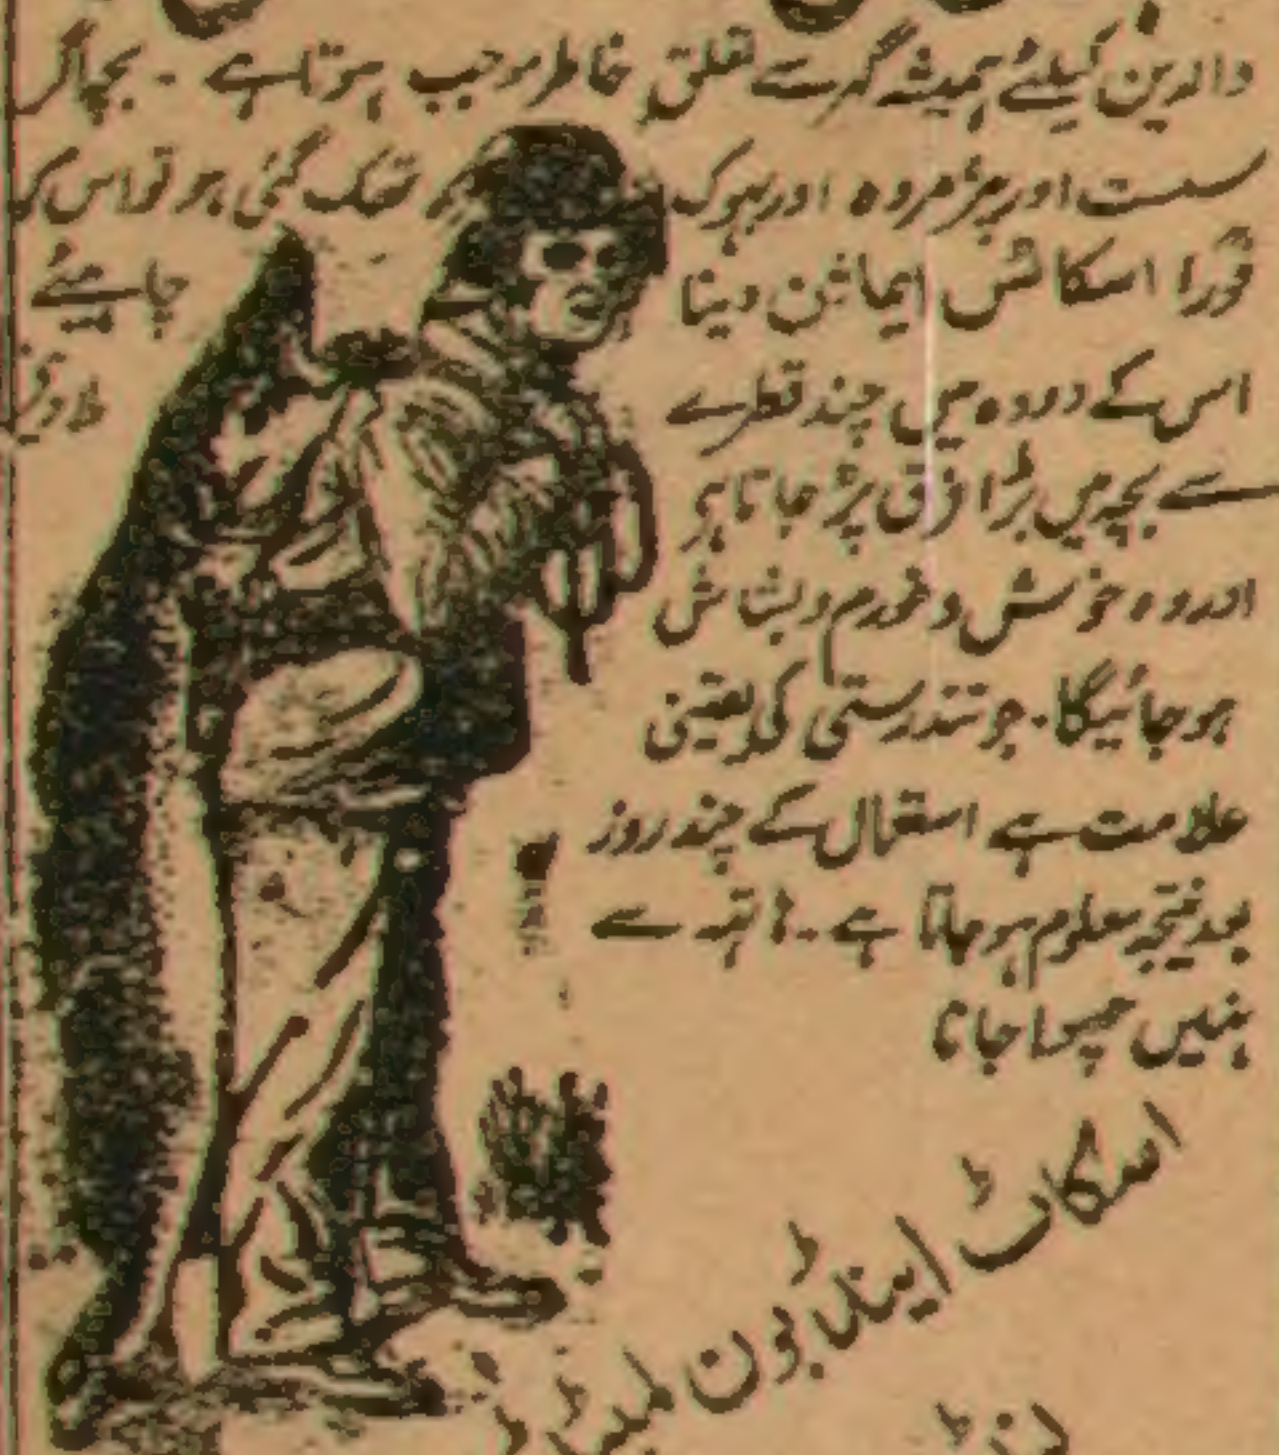 والدین کیلئے ہمیشہ گہرے تعلق خاطر موجب ہوتا ہے - بچہ اگر
سست اور پژمردہ اور بہوک تھک گئی ہر تو اس کو
فوراً اسکاٹس ایملشن دینا چاہیئے
اس کے دودہ میں چند قطرے
سے بچہ میں بڑا فرق پڑ جاتا ہر
اور وہ خوش و خورم و بشاش
ہو جائیگا. جو تندرستی کی یقینی
علامت ہے استعمال کے چند روز
بعد نتیجہ معلوم ہو جاتا ہے - ہاتہہ سے
نہیں چھوا جاتا
اسکاٹ اینڈ بون لمیٹڈ
لنڈ